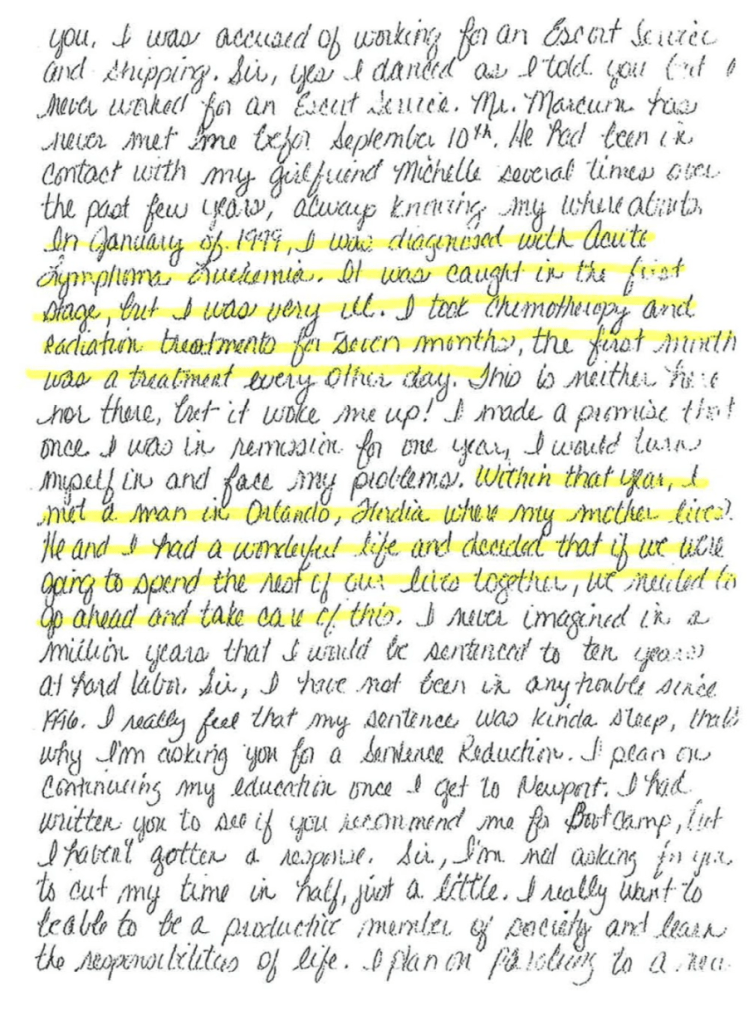 you. I was accused of working for an Escort Service
and shipping. Sir, yes I danced as I told you but I
never worked for an Escort Service. Mr. Marcum has
never met me befor September 10th. He had been in
contact with my girlfriend Michelle several times over
the past few years, always knowing my whereabouts.
In January of 1999, I was diagnosed with Acute
Lymphoma Luekemia. It was caught in the first
stage, but I was very ill. I took Chemotherapy and
Radiation treatments for seven months, the first month
was a treatment every other day. This is neither here
nor there, but it woke me up! I made a promise that
once I was in remission for one year, I would turn
myself in and face my problems. Within that year, I
met a man in Orlando, Florida where my mother lives.
He and I had a wonderful life and decided that if we were
going to spend the rest of our lives together, we needed to
go ahead and take care of this. I never imagined in a
million years that I would be sentenced to ten years
at hard labor. Sir, I have not been in any trouble since
1996. I really feel that my sentence was kinda steep, that's
why I'm asking you for a Sentence Reduction. I plan on
continuing my education once I get to Newport. I had
written you to see if you recommend me for Boot Camp, but
I haven't gotten a response. Sir, I'm not asking for you
to cut my time in half, just a little. I really want to
be able to be a productive member of society and learn
the responsibilities of life. I plan on paroling to a